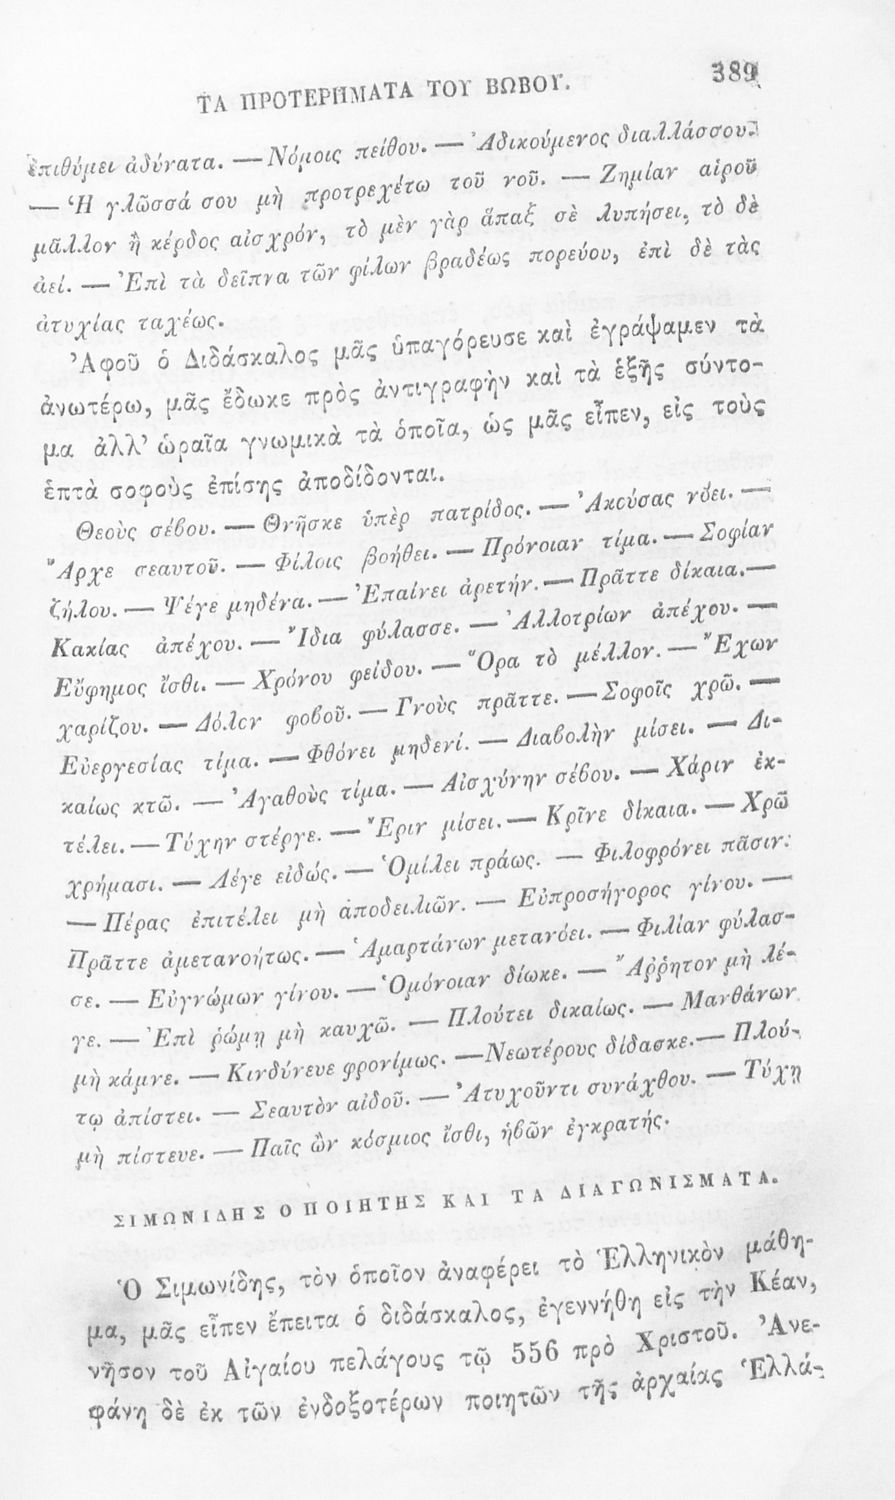 ΤΑ ΠΡΟΤΕΡΗΜΑΤΑ ΤΟΥ ΒΩΒΟΥ. 389
ἐπιθύμει ἀδύνατα. — Νόμοις πείθου. — Ἀδικούμενος διαλλάσσου.
— Ἡ γλῶσσά σου μὴ προτρεχέτω τοῦ νοῦ. — Ζημίαν αἱροῦ
μᾶλλον ἢ κέρδος αἰσχρόν, τὸ μὲν γὰρ ἅπαξ σὲ λυπήσει, τὸ δὲ
ἀεί. — Ἐπὶ τὰ δεῖπνα τῶν φίλων βραδέως πορεύου, ἐπὶ δὲ τὰς
ἀτυχίας ταχέως.
Ἀφοῦ ὁ Διδάσκαλος μᾶς ὑπαγόρευσε καὶ ἐγράψαμεν τὰ
ἀνωτέρω, μᾶς ἔδωκε πρὸς ἀντιγραφὴν καὶ τὰ ἑξῆς σύντο-
μα ἀλλ’ ὡραῖα γνωμικὰ τὰ ὁποῖα, ὡς μᾶς εἶπεν, εἰς τοὺς
ἑπτὰ σοφοὺς ἐπίσης ἀποδίδονται.
Θεοὺς σέβου. — Θνῆσκε ὑπὲρ πατρίδος. — Ἀκούσας νόει. —
Ἄρχε σεαυτοῦ. — Φίλοις βοήθει. — Πρόνοιαν τίμα. — Σοφίαν
ζήλου. — Ψέγε μηδένα. — Ἐπαίνει ἀρετήν. — Πρᾶττε δίκαια. —
Κακίας ἀπέχου. — Ἴδια φύλασσε. — Ἀλλοτρίων ἀπέχου. —
Εὔφημος ἴσθι. — Χρόνου φείδου. — Ὅρα τὸ μέλλον. — Ἔχων
χαρίζου. — Δόλον φοβοῦ. — Γνοὺς πρᾶττε. — Σοφοῖς χρῶ. —
Εὐεργεσίας τίμα. — Φθόνει μηδενί. — Διαβολὴν μίσει. — Δι-
καίως κτῶ. — Ἀγαθοὺς τίμα. — Αἰσχύνην σέβου. — Χάριν ἐκ-
τέλει. — Τύχην στέργε. — Ἔριν μίσει. — Κρῖνε δίκαια. — Χρῶ
χρήμασι. — Λέγε εἰδώς. — Ὁμίλει πράως. — Φιλοφρόνει πᾶσιν.
— Πέρας ἐπιτέλει μὴ ἀποδειλιῶν. — Εὐπροσήγορος γίνου. —
Πρᾶττε ἀμετανοήτως. — Ἁμαρτάνων μετανόει. — Φιλίαν φύλασ-
σε. — Εὐγνώμων γίνου. — Ὁμόνοιαν δίωκε. — Ἄῤῥητον μὴ λέ-
γε. — Ἐπὶ ῥώμῃ μὴ καυχῶ. — Πλούτει δικαίως. — Μανθάνων
μὴ κάμνε. — Κινδύνευε φρονίμως. — Νεωτέρους δίδασκε. — Πλού-
τῳ ἀπίστει. — Σεαυτὸν αἰδοῦ. — Ἀτυχοῦντι συνάχθου. — Τύχῃ
μὴ πίστευε. — Παῖς ὢν κόσμιος ἴσθι, ἡβῶν ἐγκρατής.
ΣΙΜΩΝΙΔΗΣ Ο ΠΟΙΗΤΗΣ ΚΑΙ ΤΑ ΔΙΑΓΩΝΙΣΜΑΤΑ.
Ὁ Σιμωνίδης, τὸν ὁποῖον ἀναφέρει τὸ Ἑλληνικὸν μάθη-
μα, μᾶς εἶπεν ἔπειτα ὁ διδάσκαλος, ἐγεννήθη εἰς τὴν Κέαν,
νῆσον τοῦ Αἰγαίου πελάγους τῷ 556 πρὸ Χριστοῦ. Ἀνε-
φάνη δὲ ἐκ τῶν ἐνδοξοτέρων ποιητῶν τῆς ἀρχαίας Ἑλλά-